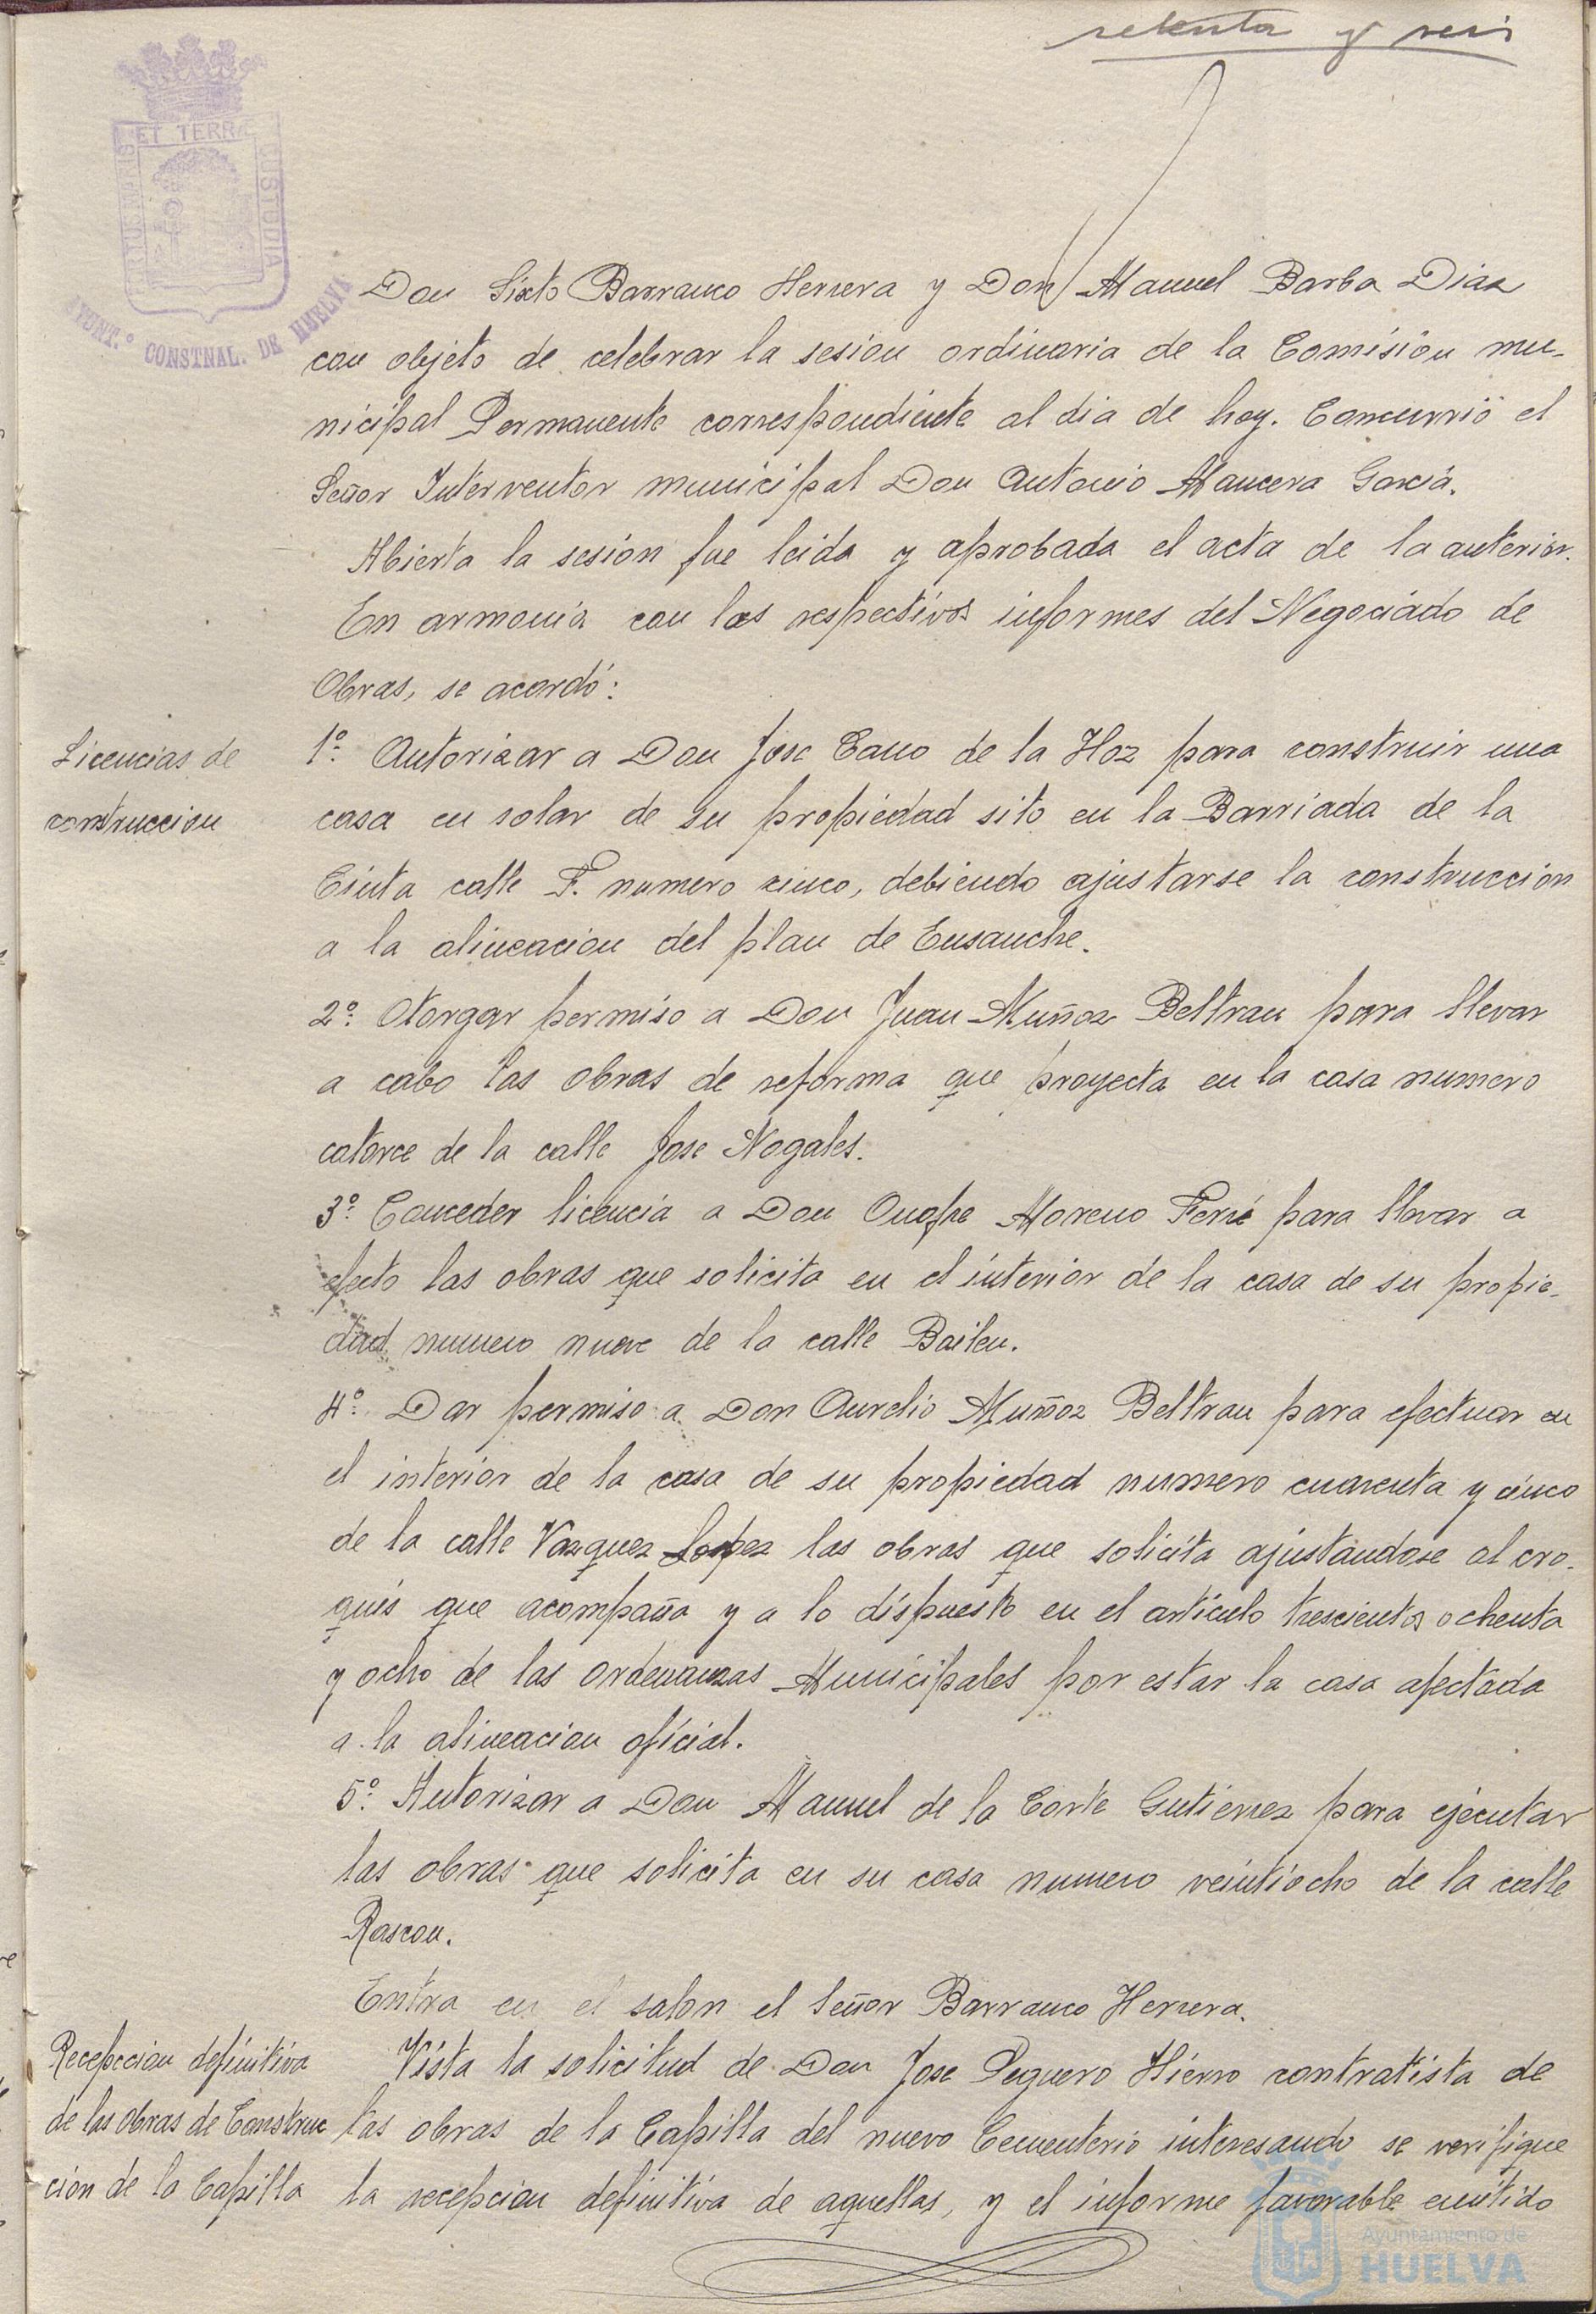 setenta y seis
ET TERRA
CUSTODIA
AYUNT.º CONSTNAL. DE HUELVA
Don Sixto Barranco Herrera y Don Manuel Barba Diaz
con objeto de celebrar la sesion ordinaria de la Comisión mu-
nicipal Permanente correspondiente al dia de hoy. Concurrió el
Señor Interventor municipal Don Antonio Mancera Garcia.
Abierta la sesión fue leida y aprobada el acta de la anterior.
En armonia con los respectivos informes del Negociado de
Obras, se acordó:
Licencias de
construccion
1º. Autorizar a Don Jose Cano de la Hoz para construir una
casa en solar de su propiedad sito en la Barriada de la
Cinta calle F. numero cinco, debiendo ajustarse la construccion
a la alineacion del plan de Ensanche.
2º. Otorgar permiso a Don Juan Muñoz Beltran para llevar
a cabo las obras de reforma que proyecta en la casa numero
catorce de la calle Jose Nogales.
3º. Conceder licencia a Don Onofre Moreno Feria para llevar a
efecto las obras que solicita en el interior de la casa de su propie-
dad numero nueve de la calle Bailen.
4º. Dar permiso a Don Aurelio Muñoz Beltran para efectuar en
el interior de la casa de su propiedad numero cuarenta y cinco
de la calle Vazquez Lopez las obras que solicita ajustandose al cro-
quis que acompaña y a lo dispuesto en el artículo trescientos ochenta
y ocho de las Ordenanzas Municipales por estar la casa afectada
a la alineacion oficial.
5º. Autorizar a Don Manuel de la Corte Gutierrez para ejecutar
las obras que solicita en su casa numero veintiocho de la calle
Rascon.
Entra en el salon el Señor Barranco Herrera.
Recepcion definitiva
de las obras de Construc
ción de la Capilla
Vista la solicitud de Don Jose Peguero Hierro contratista de
las obras de la Capilla del nuevo Cementerio interesando se verifique
la recepcion definitiva de aquellas, y el informe favorable emitido
Ayuntamiento de
HUELVA